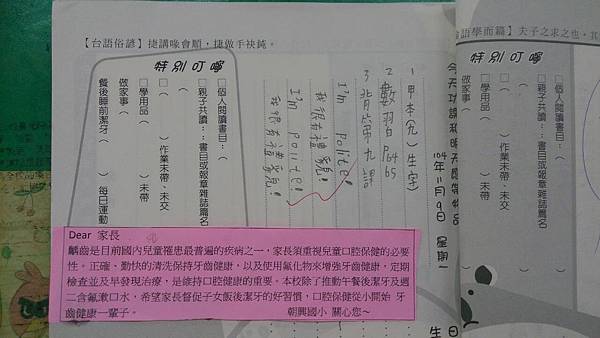 【台語俗諺】捷講喙會順，捷做手袂鈍。
今天功課和明天應帶物品
104年11月9日 星期一
1.甲本完(生字)
2.數習P64 65
3.背第九課
I'm polite!
我很有禮貌!
I'm polite!
我很有禮貌!
特別叮嚀
□個人閱讀書目：（
□親子共讀：書目或報章雜誌篇名
（ ）
□（ ）作業未帶、未交
□學用品（ ）未帶
做家事（ ）
餐後睡前潔牙（ ）每日運動
Dear 家長
齲齒是目前國內兒童罹患最普遍的疾病之一，家長須重視兒童口腔保健的必要
性。正確、勤快的清洗保持牙齒健康，以及使用氟化物來增強牙齒健康，定期
檢查並及早發現治療，是維持口腔健康的重要。本校除了推動午餐後潔牙及週
二含氟漱口水，希望家長督促子女飯後潔牙的好習慣，口腔保健從小開始 牙
齒健康一輩子。 朝興國小 關心您~
語學而篇】夫子之求之也，其
特別叮嚀
□個人閱讀書目：
□親子共讀：書目或報章雜誌篇
（
□（ ）作業未帶、未交
□學用品（ ）未帶
做家事（
生日